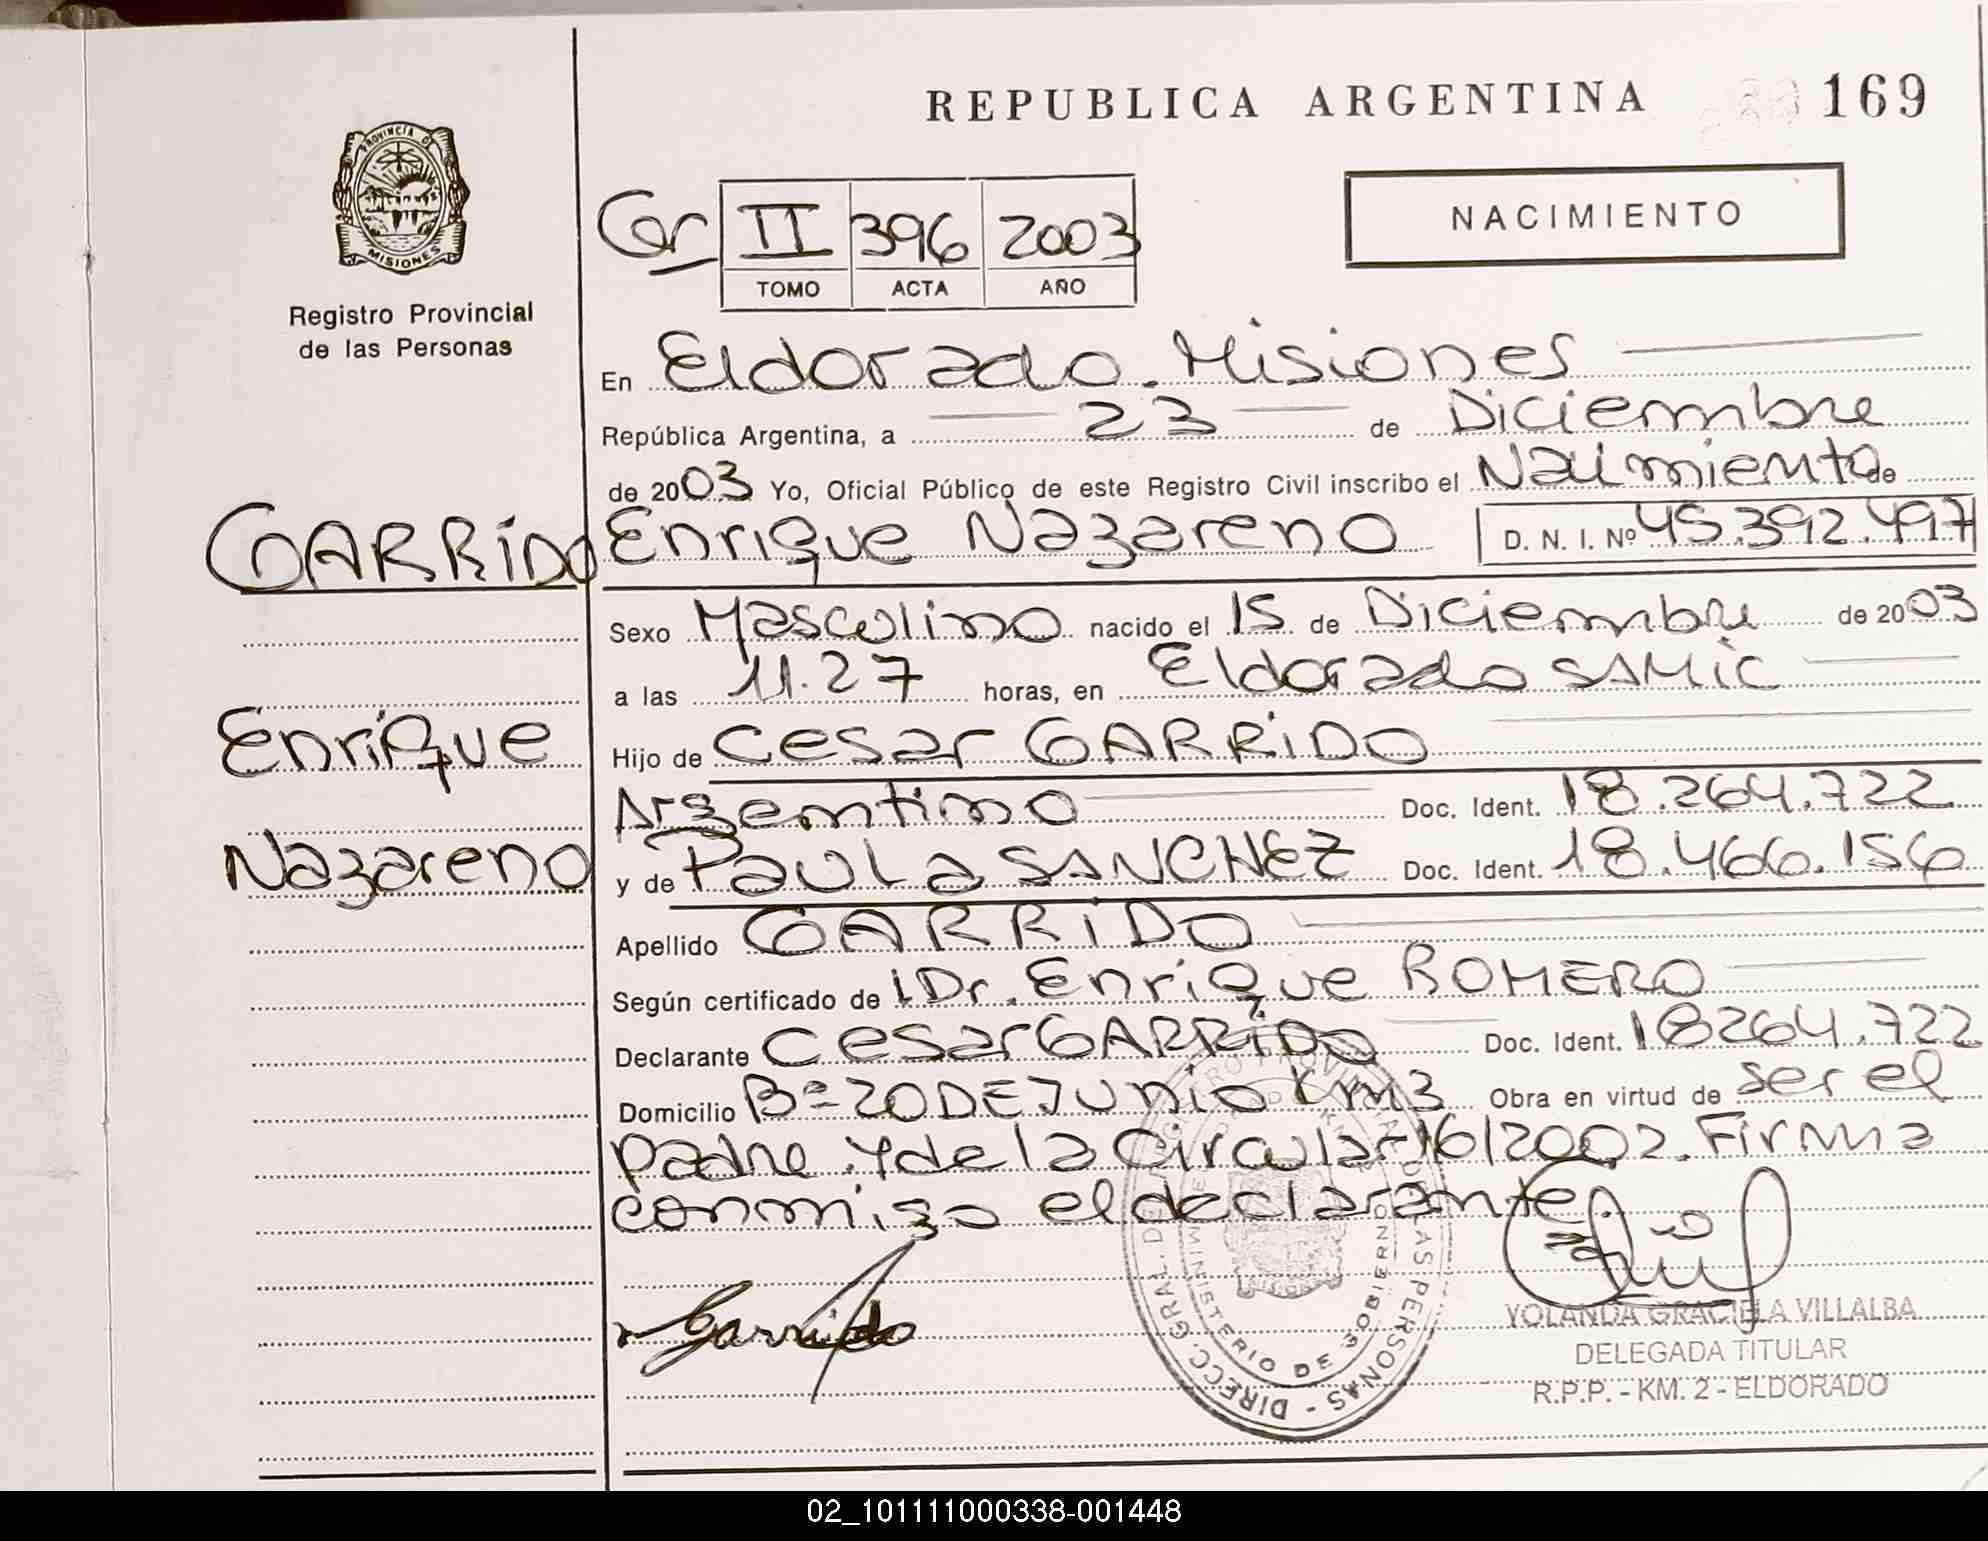 REPUBLICA ARGENTINA
169
PROVINCIA DE
MISIONES
Registro Provincial
de las Personas
Cor
II 396 2003
TOMO ACTA AÑO
NACIMIENTO
En Eldorado. Misiones
República Argentina, a 23 de Diciembre
de 2003 Yo, Oficial Público de este Registro Civil inscribo el Nacimiento de
GARRIDO
Enrique Nazareno D. N. I. Nº 45.392.497
Sexo Masculino nacido el 15 de Diciembre de 2003
a las 11.27 horas, en Eldorado SAMIC
Enrique
Nazareno
Hijo de Cesar GARRIDO
Argentino Doc. Ident. 18.264.722
y de Paula SANCHEZ Doc. Ident. 18.466.156
Apellido GARRIDO
Según certificado de Dr. Enrique ROMERO
Declarante Cesar GARRIDO Doc. Ident. 18264.722
Domicilio Bº 20 DE JUNIO Km3 Obra en virtud de ser el
padre y de la Circular 16/2002. Firma
conmigo el declarante.
Garrido
DIRECC. GRAL. DE
LAS PERSONAS
MINISTERIO DE GOBIERNO
YOLANDA GRACIELA VILLALBA
DELEGADA TITULAR
R.P.P. - KM. 2 - ELDORADO
02_101111000338-001448